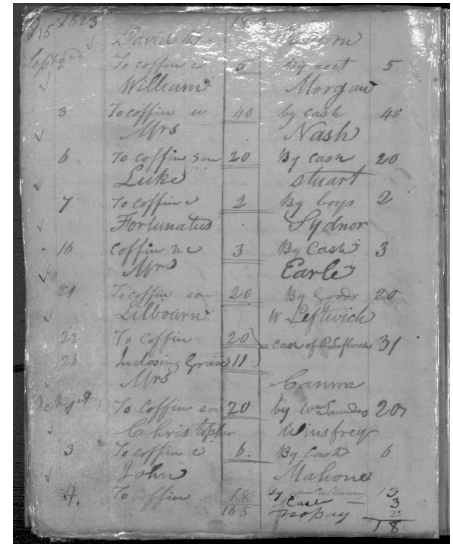 1823
David
Sept 2 To coffin c 5 By acct 5
William Morgan
3 To coffin w 40 by cash 40
Mrs Nash
6 To coffin son 20 By cash 20
Luke Stuart
7 To coffin c 2 By boys 2
Fortunatus Sydnor
16 Coffin n c 3 By Cash 3
Mrs Earle
21 To coffin son 20 By Goods 20
Lilbourn W Leftwich
22 To Coffin 20 cash of Leftwich 31
23 Inclosing Grave 11
Mrs
To coffin son 20 by Wm Saunders 20
Christopher Winsfrey
3 To coffin c 6. By Cash 6
John Mahone
4. To Coffin 18 By 15
165 Cash 3
18